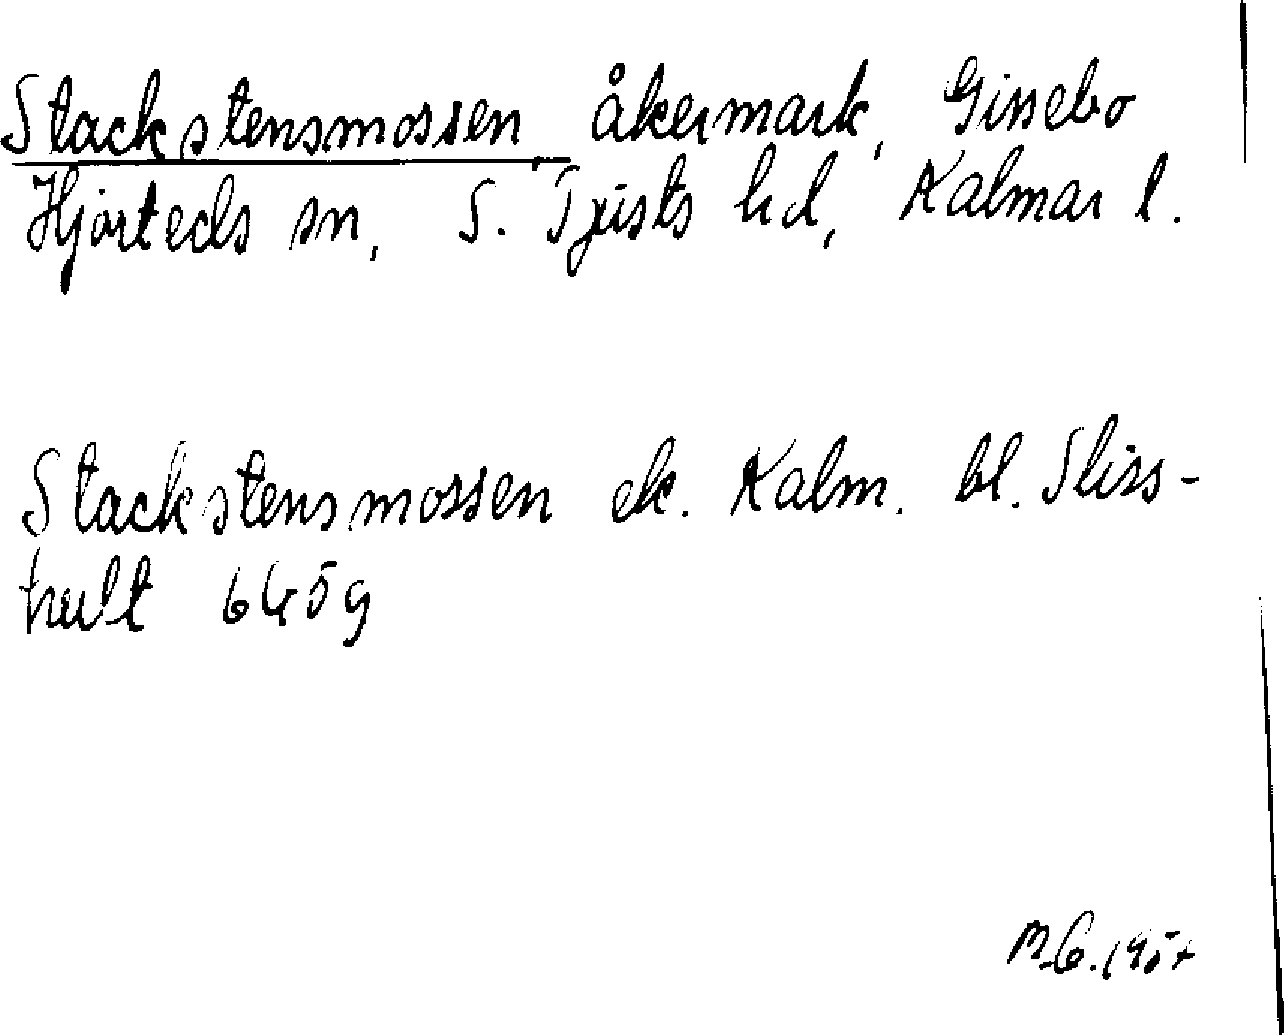 Stackstensmossen åkermark, Gissebo
Hjorteds sn, S. Tjusts hd, Kalmar l.
Stackstensmossen ek. Kalm. bl. Sliss-
hult 6459
M.G. 195